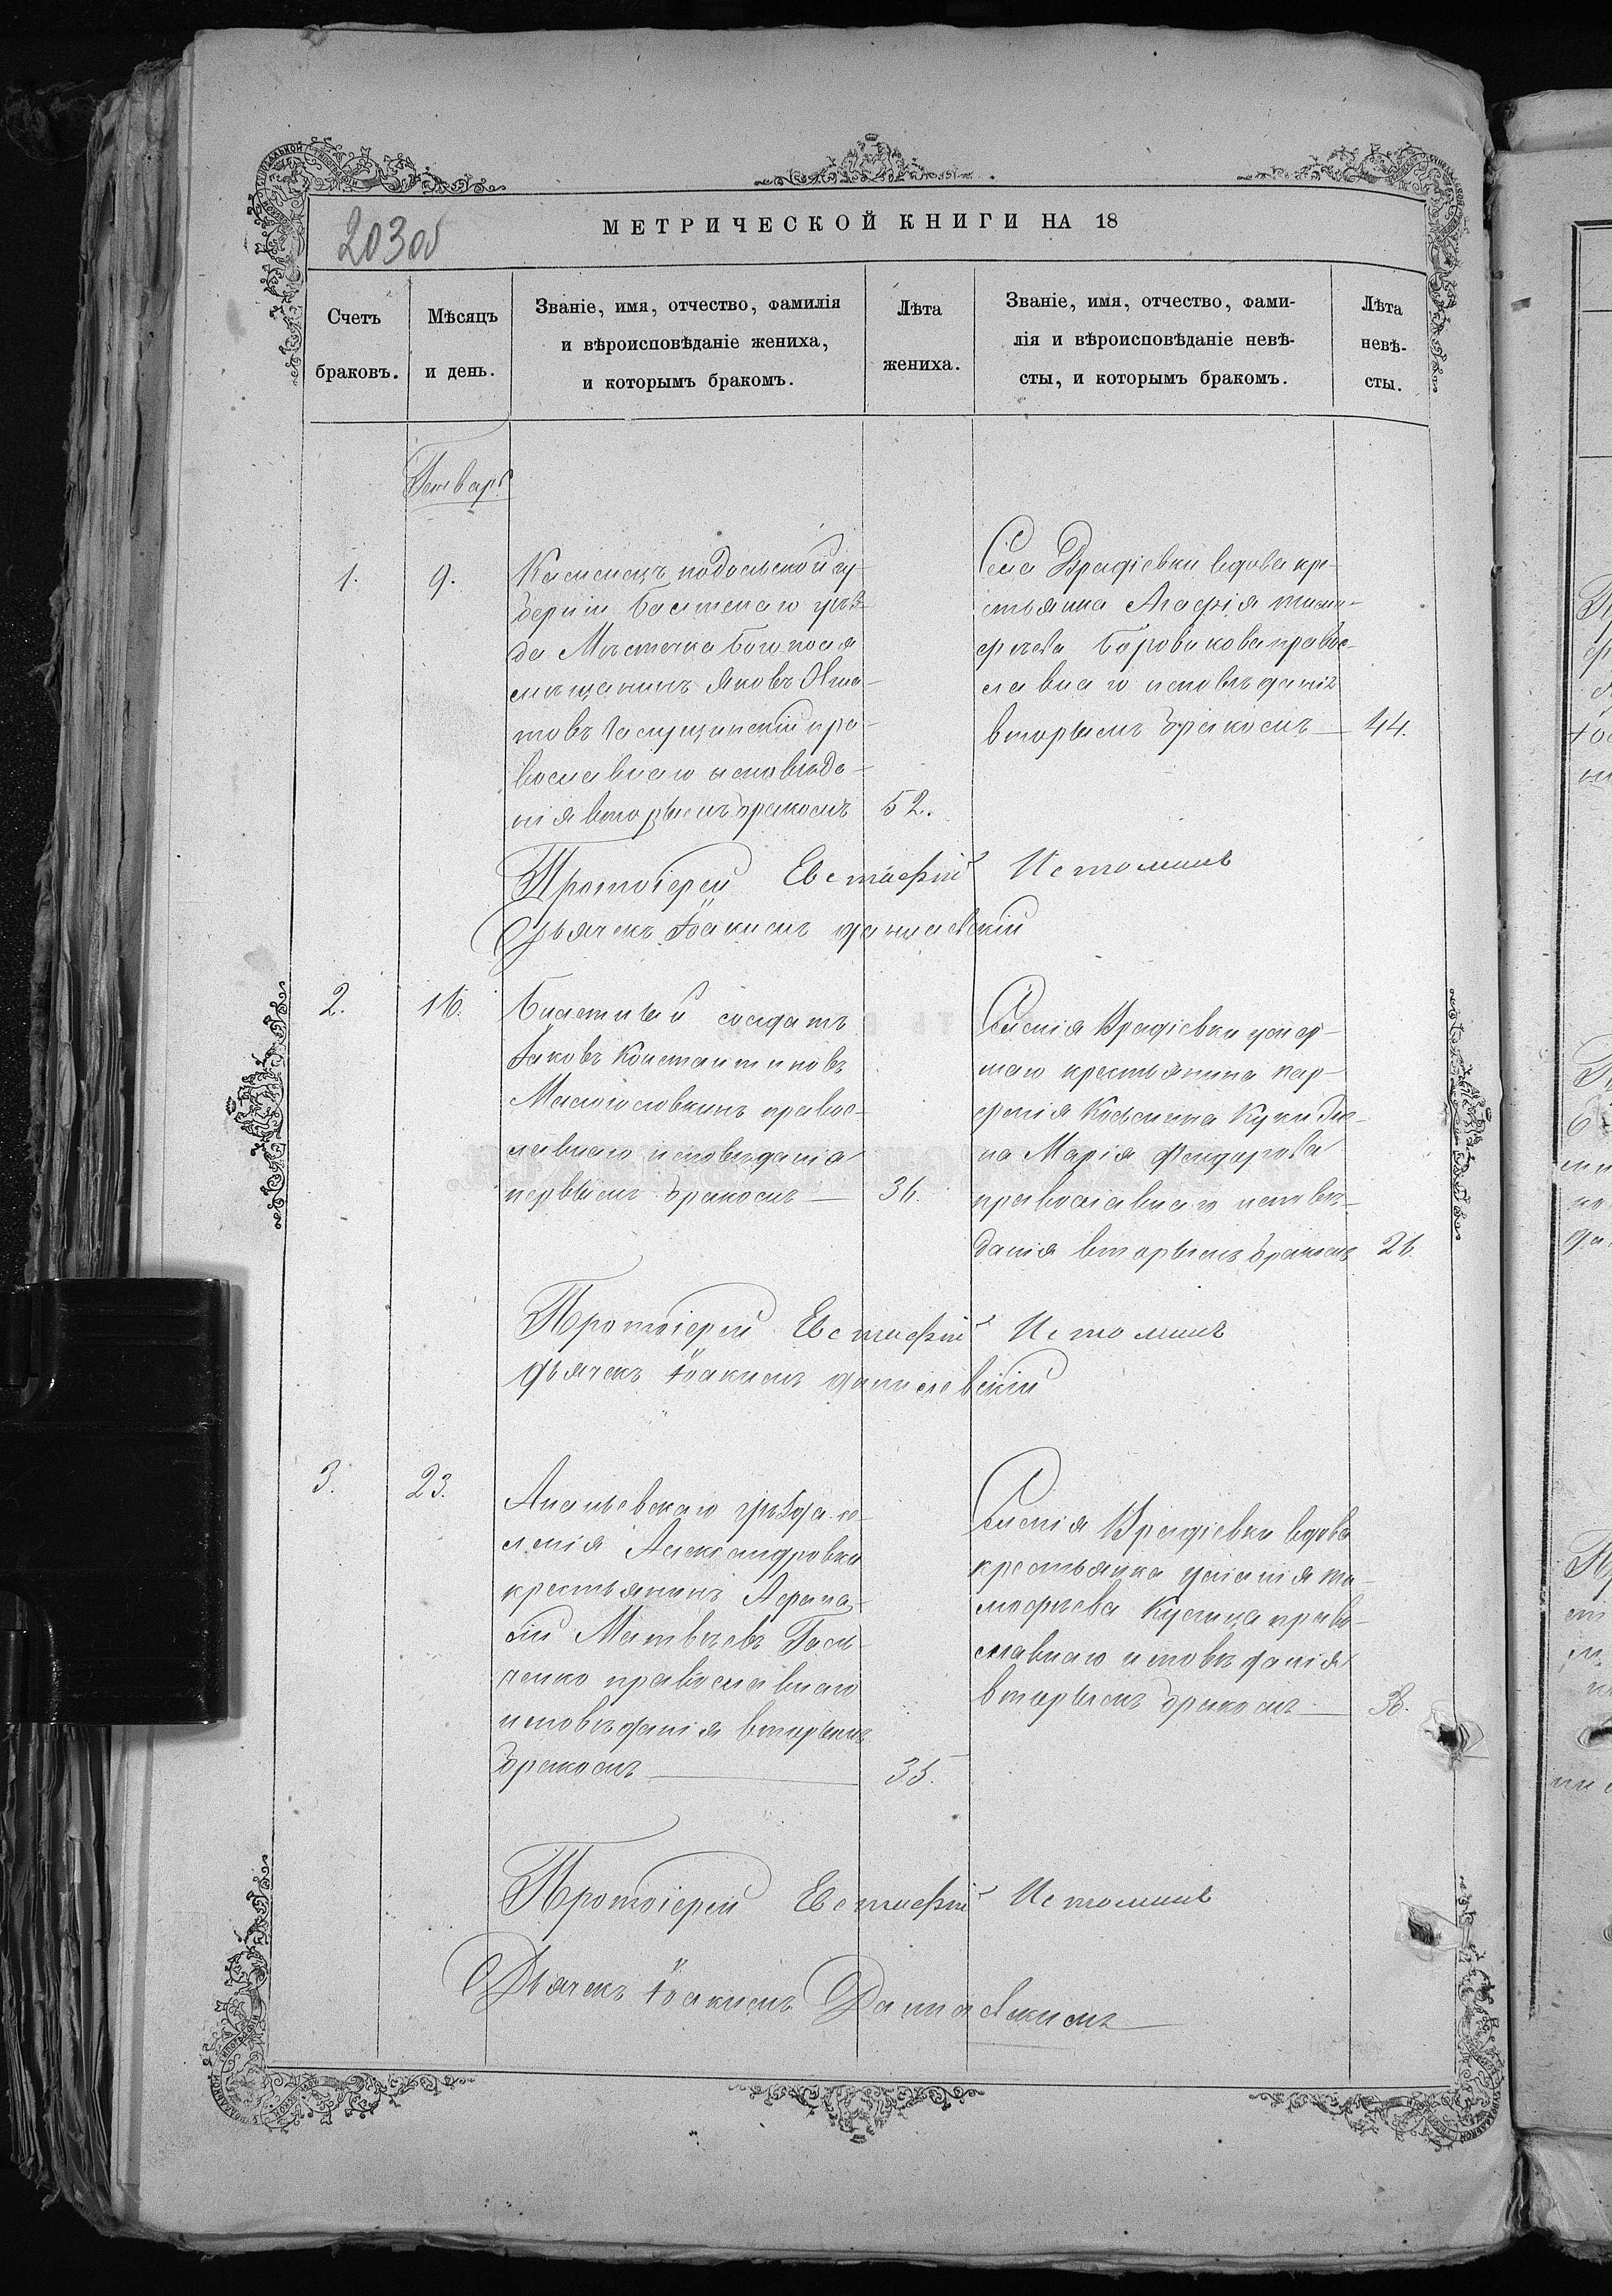 203об
МЕТРИЧЕСКОЙ КНИГИ НА 18
Счетъ браковъ.
Мѣсяцъ и день.
Званіе, имя, отчество, фамилія
и вѣроисповѣданіе жениха,
и которымъ бракомъ.
Лѣта жениха.
Званіе, имя, отчество, фами-
лія и вѣроисповѣданіе невѣ-
сты, и которымъ бракомъ.
Лѣта невѣ-
сты.
Генварь
1.
9.
Каменецъ подольской гу-
берніи Балтскаго уѣз-
да Мѣстечка Богополя
мѣщанинъ Яковъ
православнаго исповѣда-
нія вторымъ бракомъ
52.
Села Врадіевки вдова кре-
стьянка Агафія Тимо-
фѣева Боровикова правос-
лавнаго исповѣданія
вторымъ бракомъ
44.
Протоіерей Евстафій Истоминъ
Дьячекъ Іоакимъ Данилевскій
2.
16.
Билетный солдатъ
Іаковъ Константиновъ
правос-
лавнаго исповѣданія
первымъ бракомъ
36.
Селенія Врадіевки умер-
шаго крестьянина Пар-
фенія Косьмина
на Марія Феодорова
православнаго исповѣ-
данія вторымъ бракомъ
26.
Протоіерей Евстафій Истоминъ
Дьячекъ Іоакимъ Данилевскій
3.
23.
Ананьевскаго уѣзда се-
ленія Александровки
крестьянинъ Афана-
сій Матвѣевъ
ченко православнаго
исповѣданія вторымъ
бракомъ
35.
Селенія Врадіевки вдова
крестьянка Уліанія Ти-
мофѣева Кулика право-
славнаго исповѣданія
вторымъ бракомъ
38.
Протоіерей Евстафій Истоминъ
Дьячекъ Іоакимъ